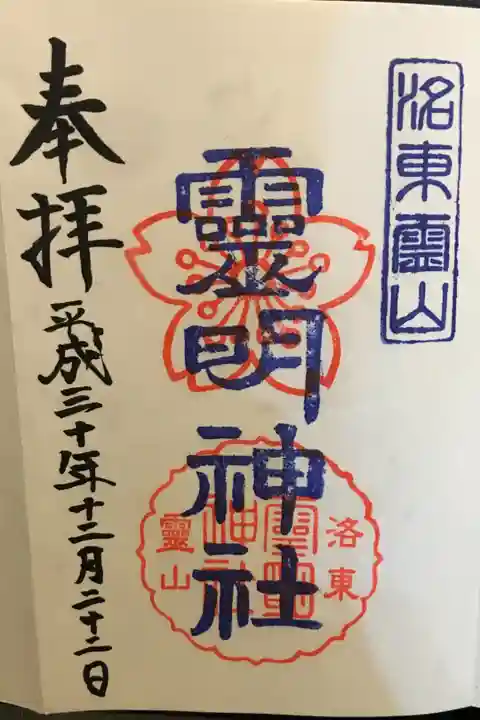 洛東靈山
靈明神社
洛東
靈明
神社
靈山
奉拝
平成三十年十二月二十二日